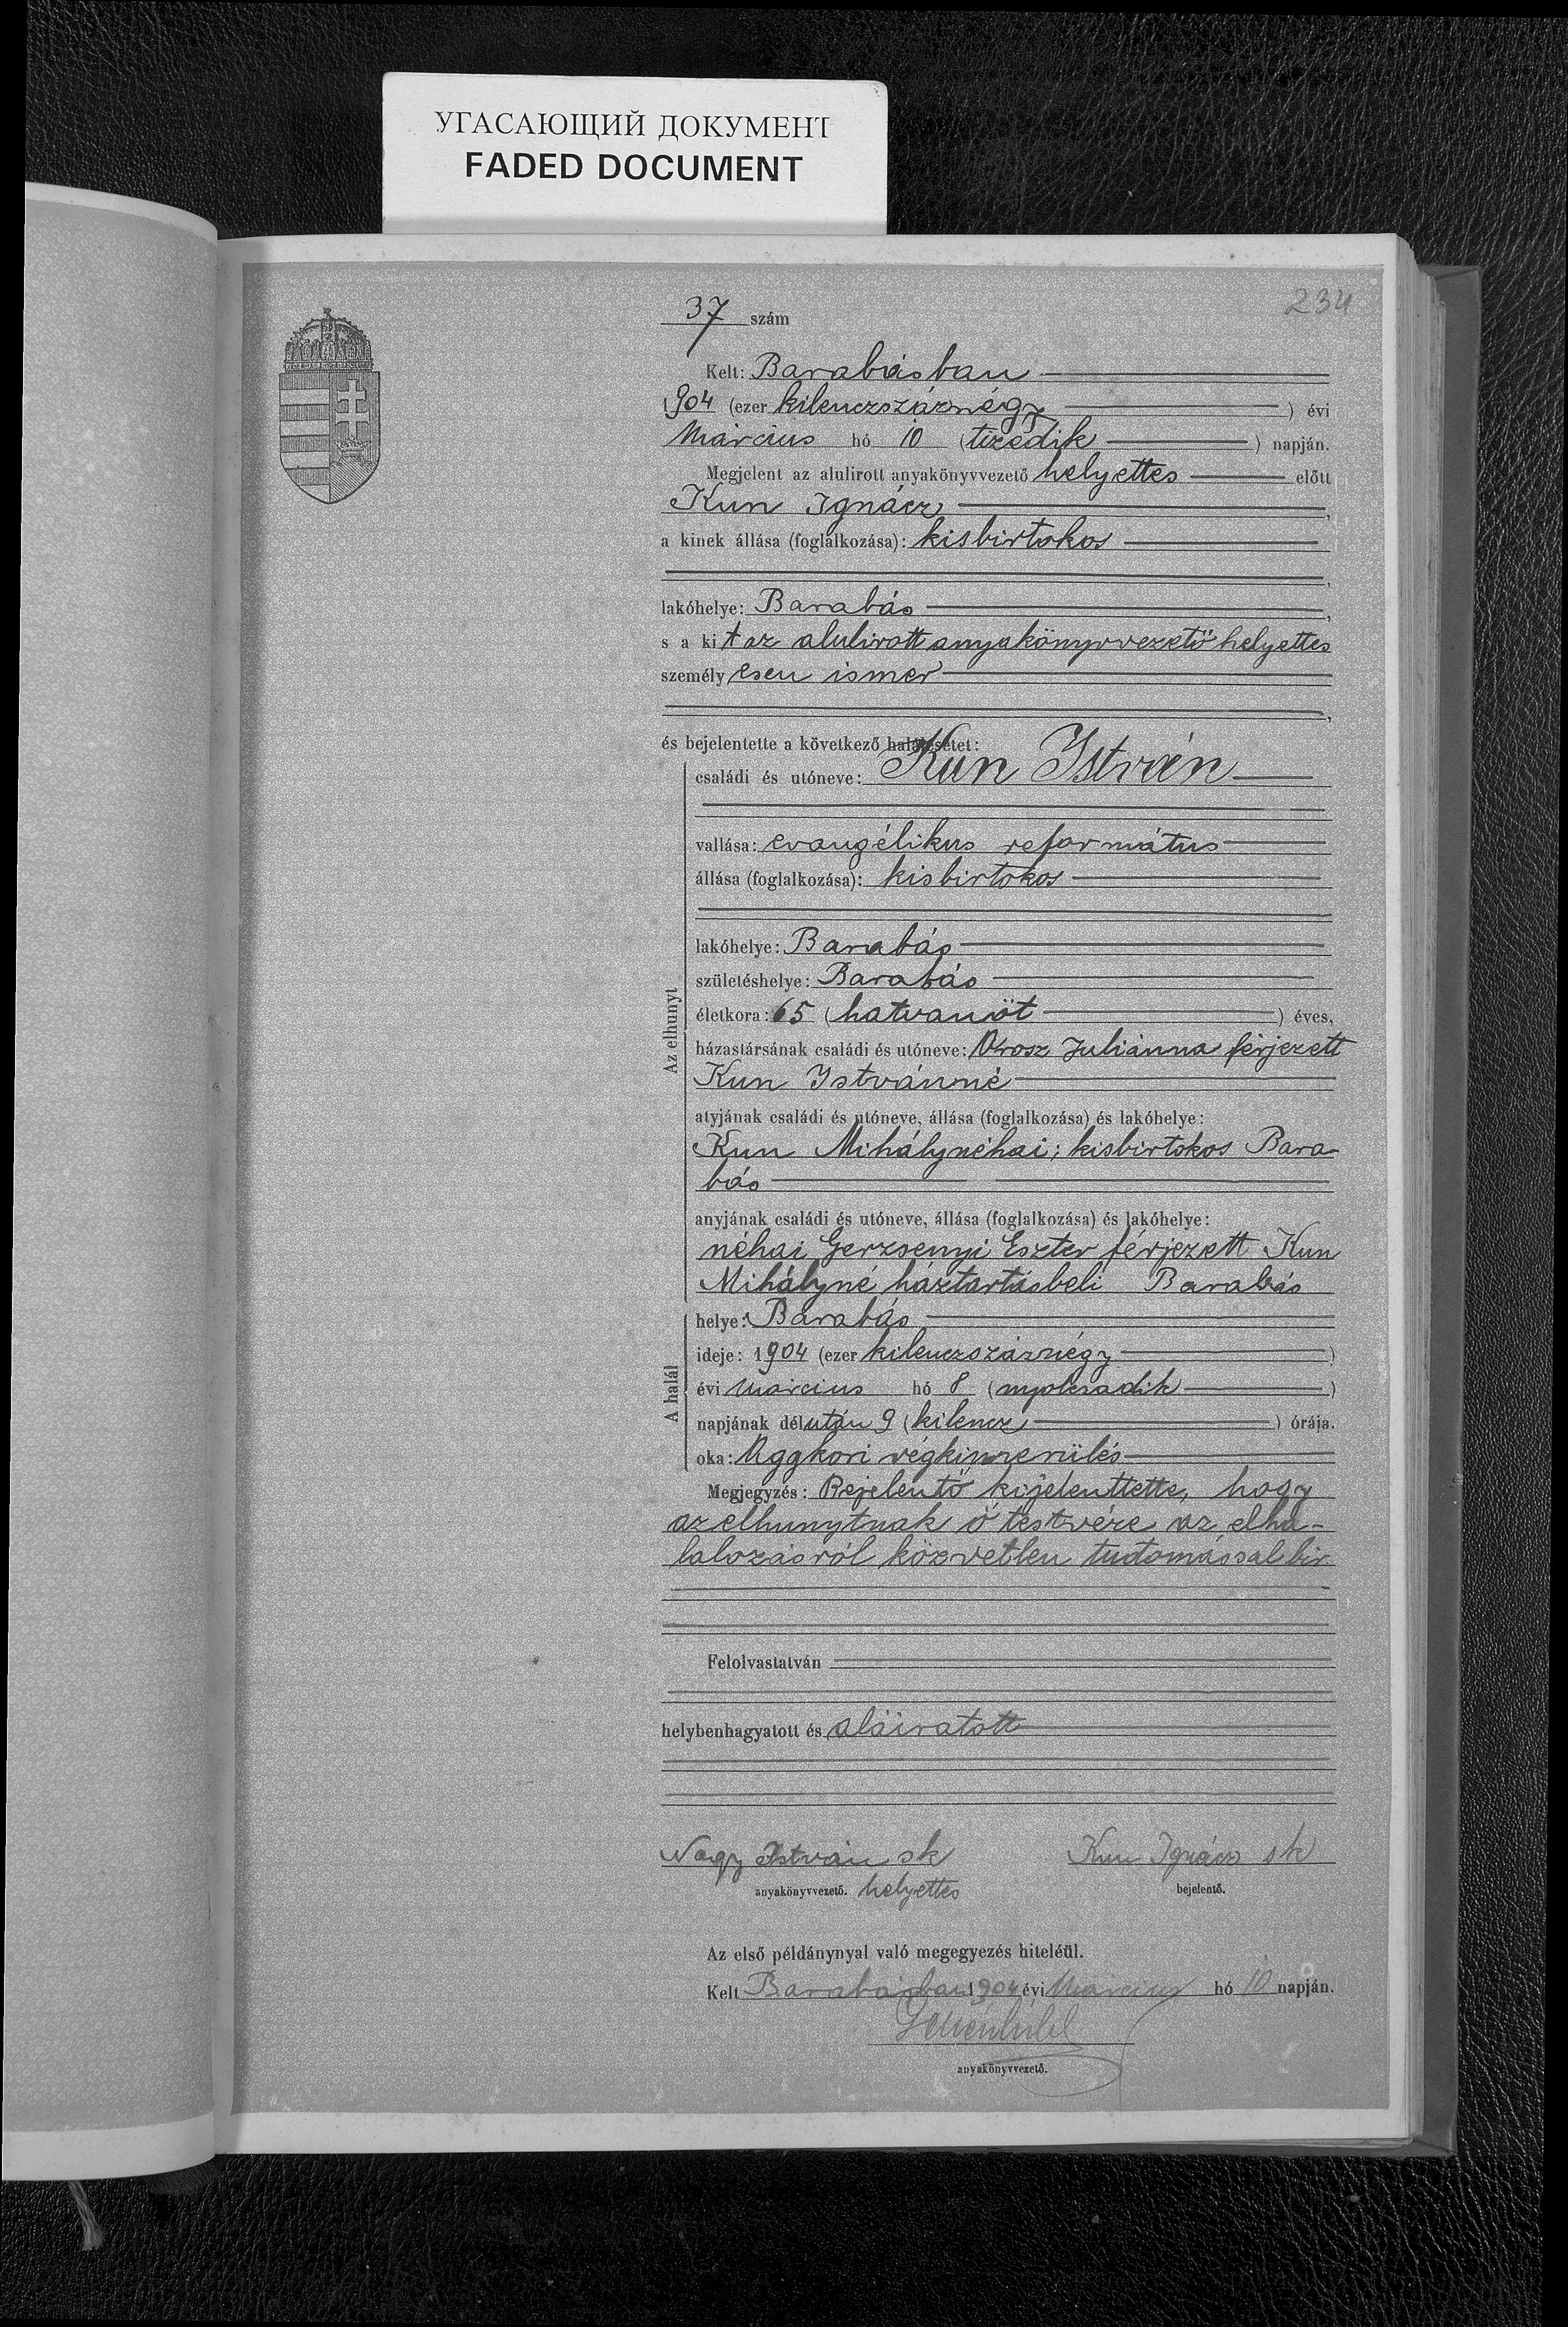 УГАСАЮЩИЙ ДОКУМЕНТ
FADED DOCUMENT
234
37 szám
Kelt: Barabásban
1904 (ezer kilenczszáznégy) évi
Március hó 10 (tizedik) napján.
Megjelent az alulirott anyakönyvvezető helyettes előtt
Kun Ignácz,
a kinek állása (foglalkozása): kisbirtokos
,
lakóhelye: Barabás,
s a kit az alulirott anyakönyvvezető helyettes
személyesen ismer
,
és bejelentette a következő halálesetet:
Az elhunyt
családi és utóneve: Kun István
vallása: evangélikus református
állása (foglalkozása): kisbirtokos
lakóhelye: Barabás
születéshelye: Barabás
életkora: 65 (hatvanöt) éves,
házastársának családi és utóneve: Orosz Juliánna férjezett
Kun Istvánné
atyjának családi és utóneve, állása (foglalkozása) és lakóhelye:
Kun Mihály néhai; kisbirtokos Bara-
bás
anyjának családi és utóneve, állása (foglalkozása) és lakóhelye:
néhai Gerzsenyi Eszter férjezett Kun
Mihályné háztartásbeli Barabás
A halál
helye: Barabás
ideje: 1904 (ezer kilenczszáznégy)
évi március hó 8 (nyolczadik)
napjának délután 9 (kilencz) órája.
oka: Aggkori végkimerülés
Megjegyzés: Bejelentő kijelenttette, hogy
az elhunytnak ő testvére az elha-
lalozásról közvetlen tudomással bir.
Felolvastatván
helybenhagyatott és aláiratott
Nagy István sk
Kun Ignácz sk
anyakönyvvezető. helyettes
bejelentő.
Az első példánynyal való megegyezés hiteléül.
Kelt Barabásban 1904 évi Március hó 10 napján.
anyakönyvvezető.